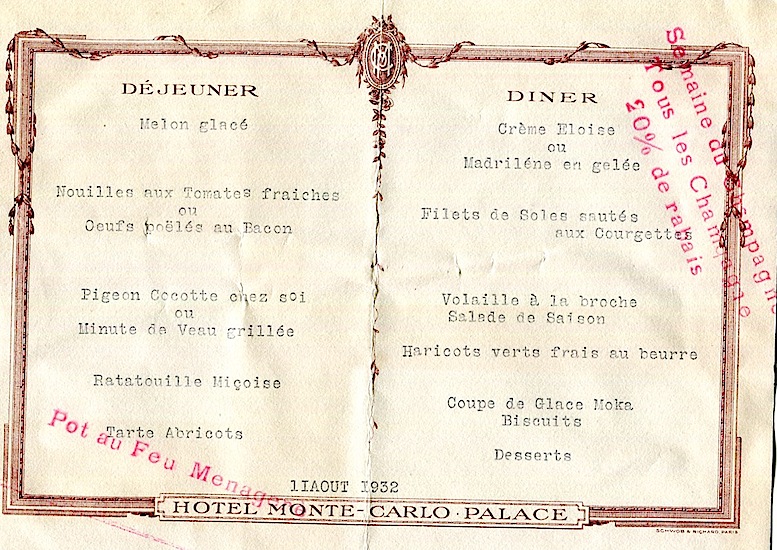 DÉJEUNER
Melon glacé
Nouilles aux Tomates fraiches
ou
Oeufs poëlés au Bacon
Pigeon Cocotte chez soi
ou
Minute de Veau grillée
Ratatouille Miçoise
Tarte Abricots
DINER
Crème Eloise
ou
Madriléne en gelée
Filets de Soles sautés
aux Courgettes
Volaille à la broche
Salade de Saison
Haricots verts frais au beurre
Coupe de Glace Moka
Biscuits
Desserts
Semaine du Champagne
Tous les Champagne
20% de rabais
Pot au Feu Menagère
11AOUT 1932
HOTEL MONTE-CARLO·PALACE
SCHWOB & RICHARD, PARIS